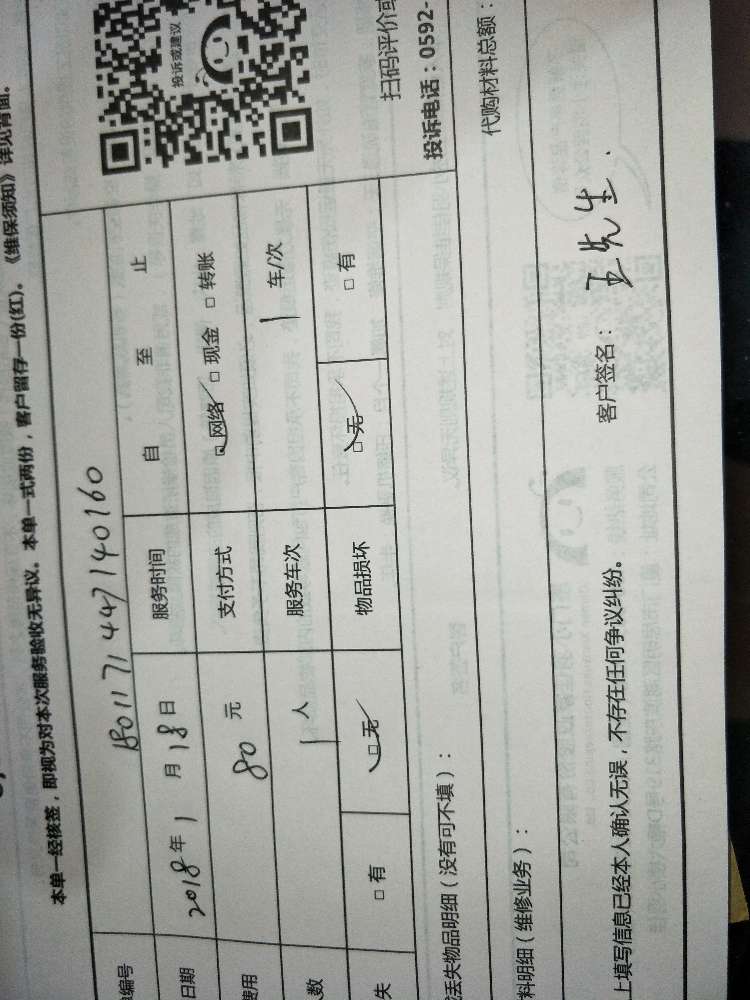 本单一经核签，即视为对本次服务验收无异议。本单一式两份，客户留存一份(红)。《维保须知》详见背面。
编号 1801171447140160
日期 2018年1月18日 服务时间 自 至 止
费用 80元 支付方式 网络 现金 转账
人数 1人 服务车次 1车/次
失 有 无 物品损坏 无 有
投诉或建议
扫码评价或
投诉电话：0592-
丢失物品明细（没有可不填）：
代购材料总额：
料明细（维修业务）：
上填写信息已经本人确认无误，不存在任何争议纠纷。 客户签名： 王先生.